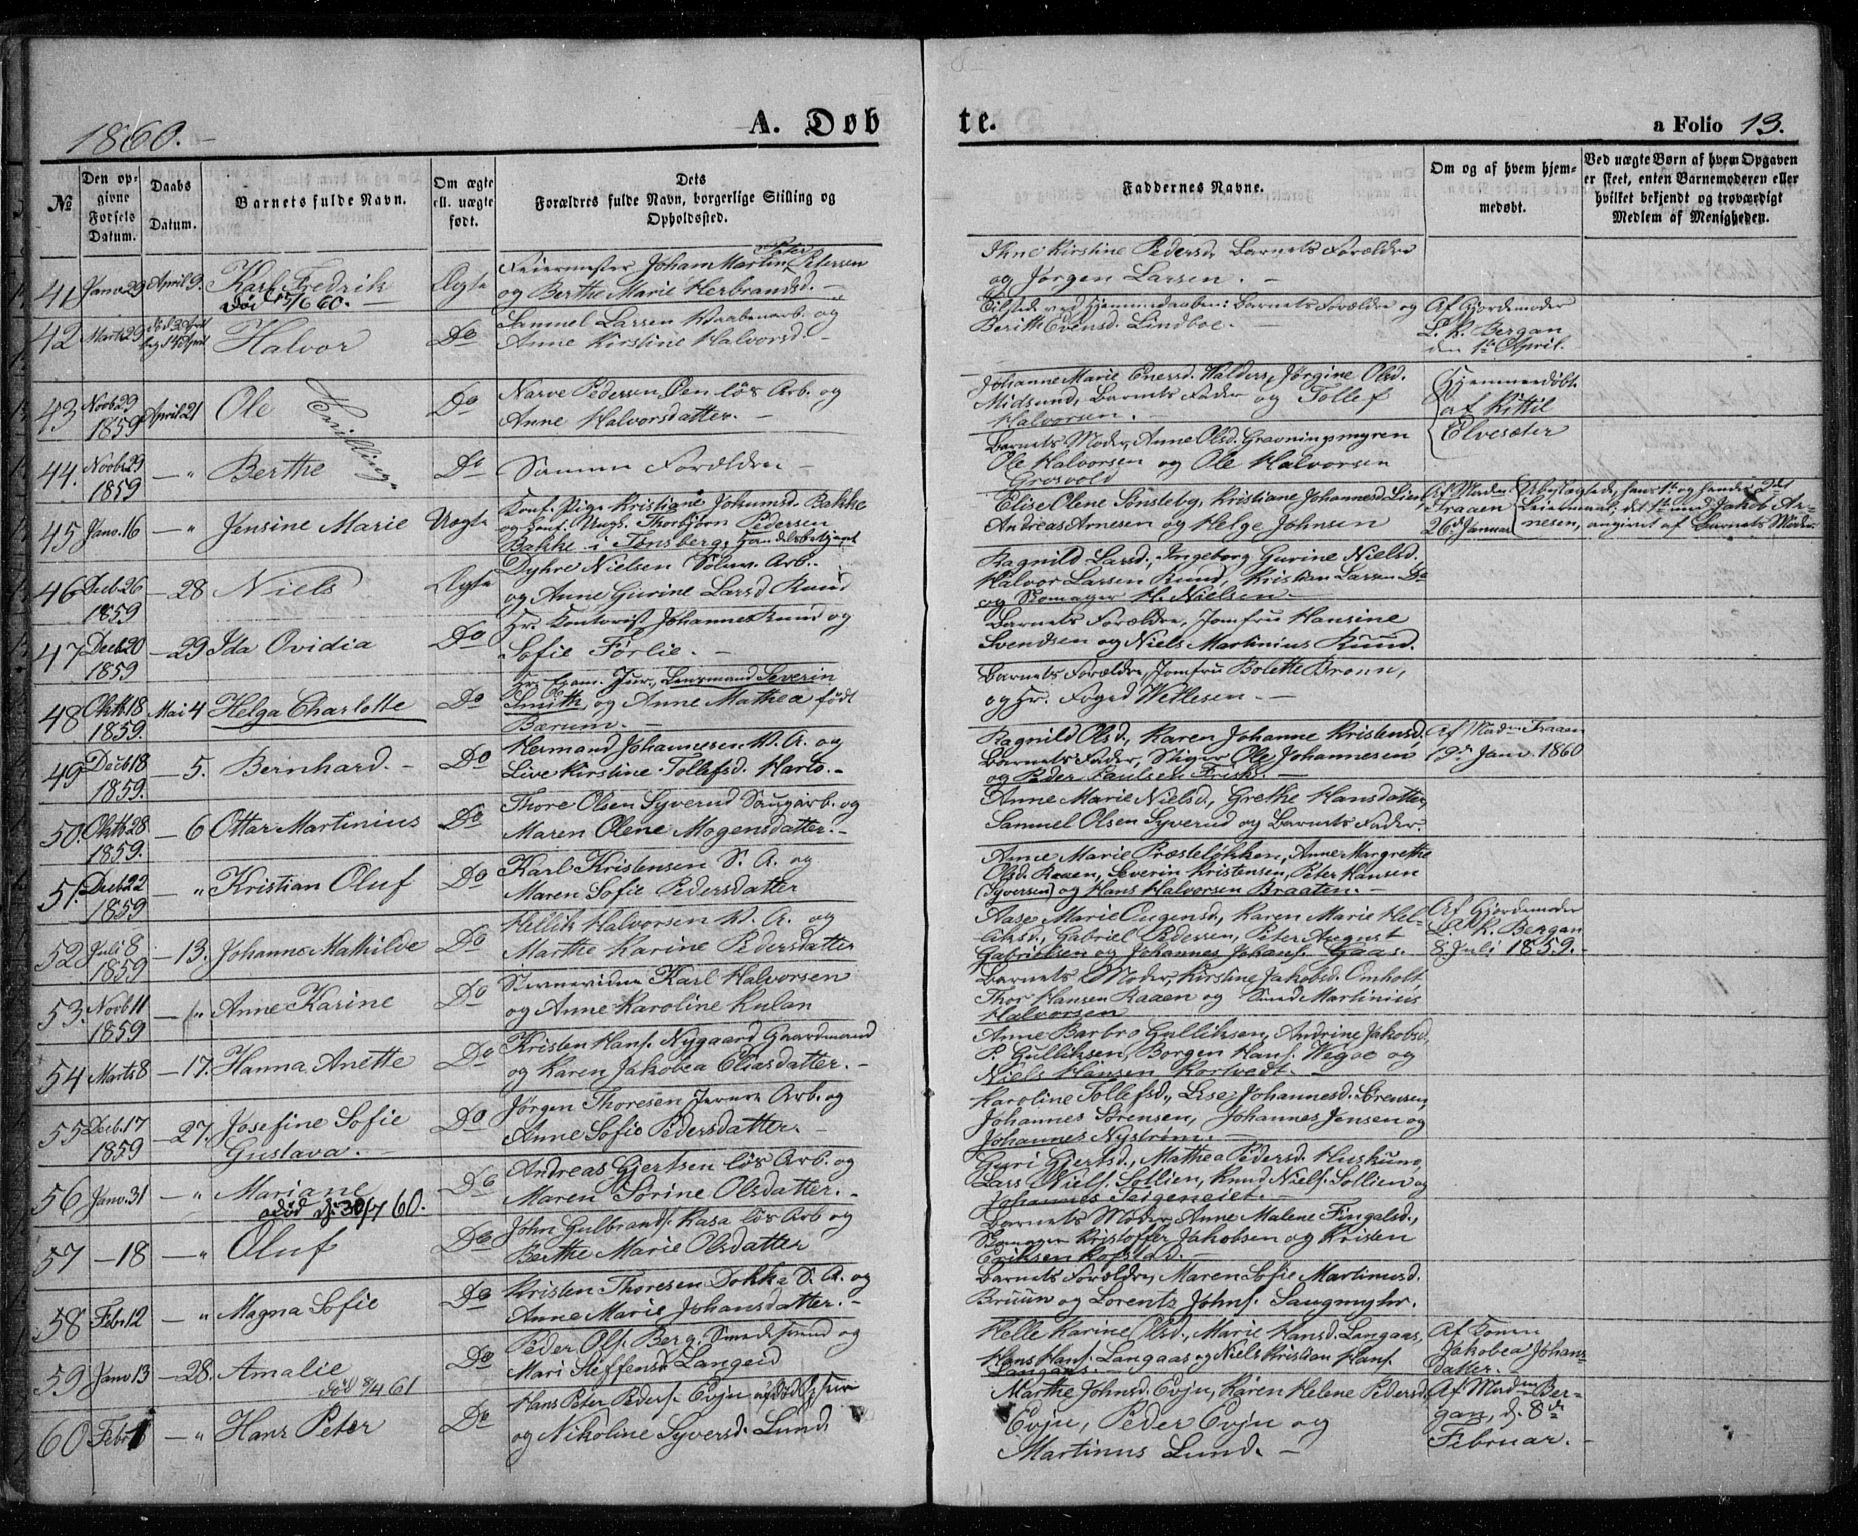 1860.
A. Døbte.
a Folio 13.
№
Den opgivne Fødsels Datum.
Daabs Datum.
Barnets fulde Navn.
Om ægte ell. uægte født.
Dets Forældres fulde Navn, borgerlige Stilling og Opholdssted.
Faddernes Navne.
Om og af hvem hjemmedøbt.
Ved uægte Børn af hvem Opgaven er skeet, enten Barnemoderen eller hvilket bekjendt og troværdigt Medlem af Menigheden.
41 Janv. 29 April 9. Karl Fredrik Ægte Feiermester Johan Martin Peter Petersen
Død 15/6 60. og Berthe Marie Herbrandsd.
Kirstine Pedersd., Barnets Forældre
og Jørgen Larsen.
42 Marts 29 14 April Halvor Do Samuel Larsen Vaabenarb. og
Anne Kirstine Halvorsd.
Tilstede ved Hjemmedaaben: Barnets Forældre og
Berith Evensd. Lindboe.
Af Gjordemoder
L. K. Bergan
den 1te April.
43 Novb. 29 1859 April 21 Ole Do Narve Pedersen løs Arb. og
Anne Halvorsdatter.
Tvillinger
Johanne Marie Enersd. Walders, Jørgine Olsd.
Midsund, Barnets Fader og Tollef
Halvorsen.
Hjemmedøbt
af Kittil
Elvesæter
44. Novb. 29 1859 — " Berthe Do Samme Forældre
Barnets Moder, Anne Olsd. Gravningsmyren
Ole Halvorsen og Ole Halvorsen
Grosvold
45 Janv. 16 — " Jensine Marie Uægte Konf. Pige Kristiane Johannesd. Bakke
og konf. Ungk. Thorbjørn Pedersen
Bakke i Tønsberg, Handelsbetjent
Elise Olene Sønsteby, Kristiane Johannesd. Lien
Andreas Arnesen og Helge Johnsen
Af Madm
Traaen
26d Januar
hans 1te og hendes 2det
Leiermaal; det 1te med Jakob Ar-
nesen, angivet af Barnets Moder
46 Decb. 26 1859 — 28 Niels Ægte Dyhre Nielsen Sølvv. Arb.
og Anne Gurine Larsd Ruud
Ragnild Larsd., Ingeborg Gurine Nielsd.
Halvor Larsen Ruud, Kristian Larsen Do
og Skomager H. Nielsen
47 Decb. 20 1859 — 29 Ida Ovidia Do Hr. Kontorist Johannes Ruud og
Sofie Førlie.
Barnets Forældre, Jomfru Hansine
Svendsen og Niels Martinius Ruud.
48 Oktb. 18 1859. Mai 4 Helga Charlotte Do Hr. Exam. Jur., Lensmand Severin
Smith, og Anne Mathea født
Bærum.
Barnets Forældre, Jomfru Bolette Bronn,
og Hr. Foged Wellesen
49 Decb. 18 1859. — 5. Bernhard. Do Hermand Johannesen V. A. og
Live Kirstine Tollefsd. Harbo.
Ragnild Olsd., Karen Johanne Kristensd,
Barnets Fader, Stiger Ole Johannesen
og Peder Paulsen Frisk.
Af Madm Traaen
19de Janv. 1860
50. Oktb. 28 1859. — 6 Ottar Martinius Do Thore Olsen Syverud Saugarb. og
Maren Olene Mogensdatter.
Anne Marie Nielsd, Grethe Hansdatter,
Samuel Olsen Syverud og Barnets Fader.
51. Decb. 22 1859 — " Kristian Oluf Do Karl Kristensen S. A. og
Maren Sofie Pedersdatter
Anne Marie Præsteløkken, Anne Margrethe
Olsd. Raaen, Severin Kristensen, Peter Hansen
(Syversen) og Hans Halvorsen Braaten.
52 Juli 8 1859 — 13. Johanne Mathilde Do Hellik Halvorsen V. A. og
Marthe Karine Pedersdatter
Aase Marie Eugensd., Karen Marie Hel-
liksd., Gabriel Pedersen, Peter August
Gabrielsen og Johannes Johans. Gaas.
Af Gjordemoder
L. K. Bergan
8 Juli 1859.
53. Novb. 11 1859 — " Anne Karine Do Karl Halvorsen
og Anne Karoline Kulan
Barnets Moder, Kirstine Jakobsd. Omholt,
Thor Hansen Raaen og Martinius
Halvorsen
54 Marts 8 — 17. Hanna Anette Do Kristen Hans. Nygaard Gaardmand
og Karen Jakobea Eliasdatter.
Anne Barbro Gulliksen, Andrine Jakobsd,
P. Gulliksen, Borgen Hans. Wegoe og
Niels Hansen Kortvedt.
55 Decb. 17 1859 — 27. Josefine Sofie
Gustava. Do Jørgen Thoresen Jernv. Arb. og
Anne Sofie Pedersdatter.
Karoline Tollefsd., Lise Johannesd. Sørensen,
Johannes Sørensen, Johannes Jensen og
Johannes Nystrøm.
56 Janv. 31 — " Mariane Do Andreas Gjertsen løs Arb. og
død d. 30/7 60. Maren Sørine Olsdatter.
Guri Gjertsd., Mathea Pedersd. Huskuno,
Lars Niels. Sollien, Knud Niels. Sollien og
Johannes Teigeneiet.
57 — 18 — " Oluf Do John Gulbrands. Kasa løs Arb og
Berthe Marie Olsdatter
Barnets Moder, Anne Malene Fingalsd.,
Skomager Kristoffer Jakobsen og Kristen
Eriksen Kofstad.
58 Febr. 12 — " Magna Sofie Do Kristen Thoresen Dokka S. A. og
Anne Marie Johansdatter.
Barnets Forældre, Maren Sofie Martinusd.
Bruun og Lorents Johns. Saugmyhr.
59 Janv 13 — 28. Amalie Do Peder Ols. Berg, Smedsvend og
Død 8/4 61 Mari Steffensd. Langeid
Helle Karine Olsd., Marie Hansd. Langaas,
Hans Hans. Langaas og Niels Kristian Hans.
Langaas.
Af Konen
Jakobea Johans-
datter.
60 Febr 1 — " Hans Peter Do Hans Peter Peders. Evju
og Nikoline Syversd. Lund
Marthe Johnsd. Evju, Karen Helene Pedersd.
Evju, Peder Evju og
Martinus Lund.
Af Madm Ber-
gan, d. 8de
Februar.